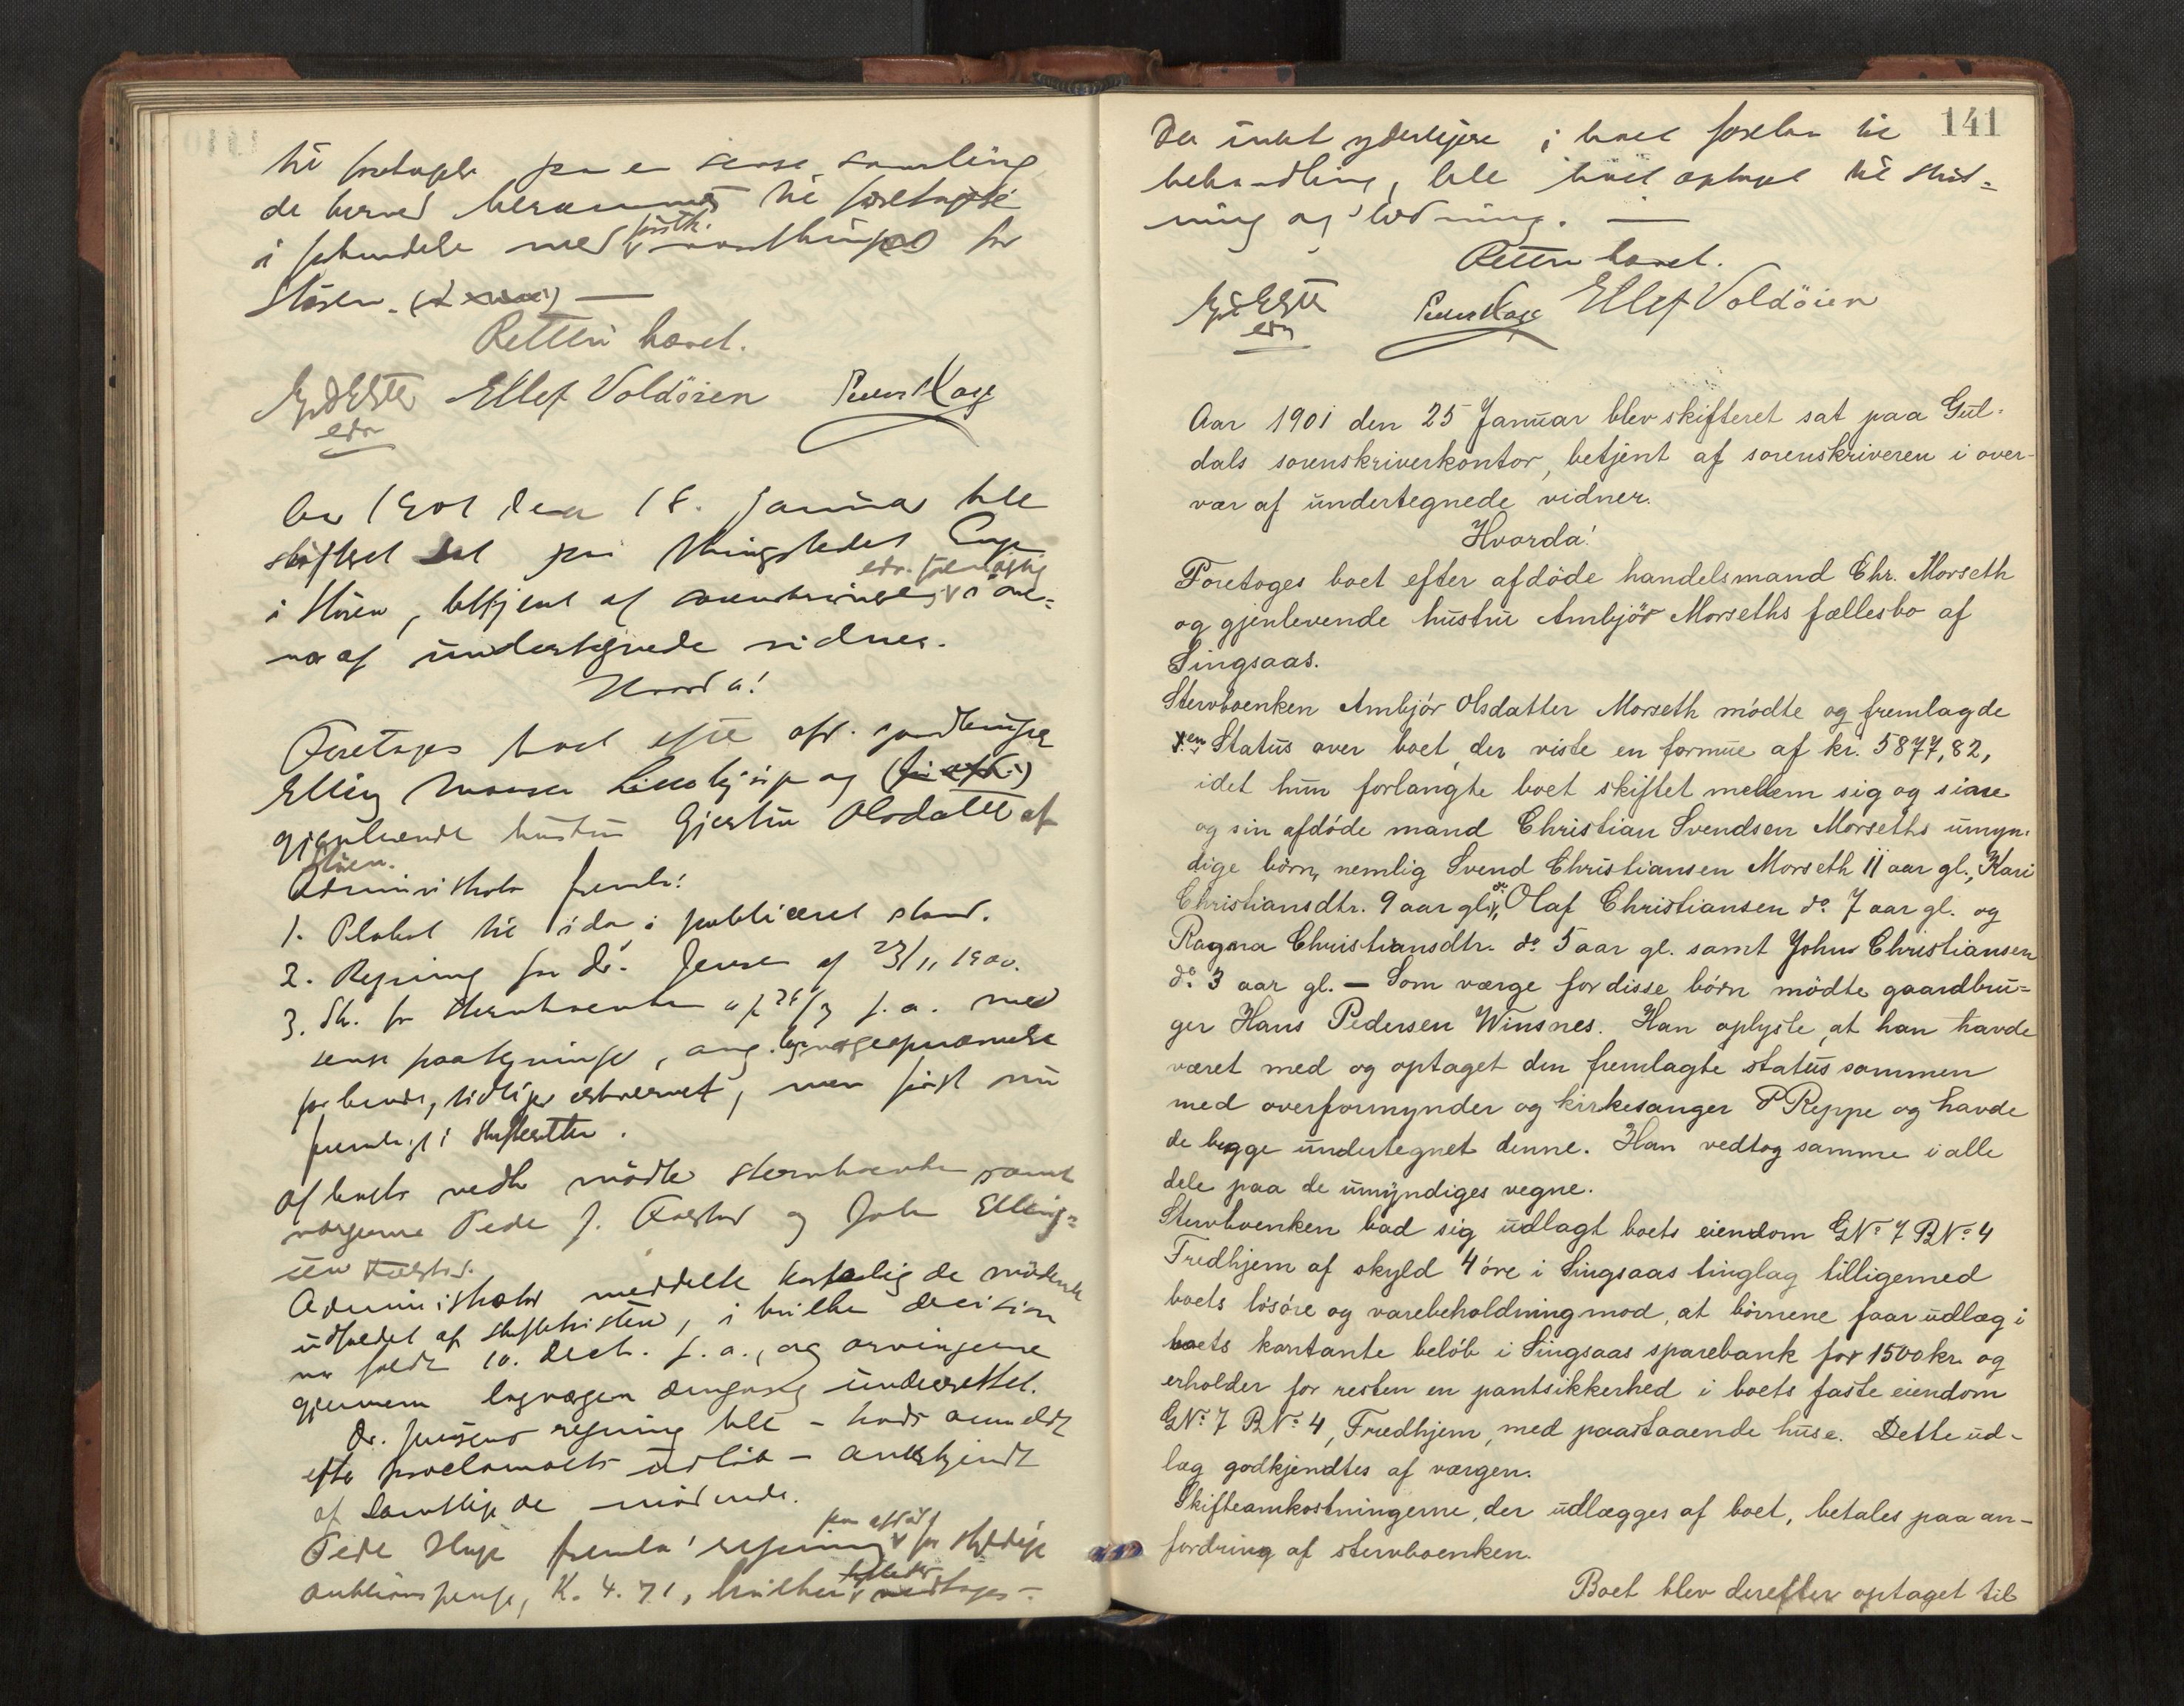 til foretagelse paa en senere samling
de berves berammes til foretagelse
i forbindelse med vaarthinget for
Støren.
Retten hævet.
Ellef Voldöien
Aar 1901 den 18. Januar blev
skifteret sat paa thingstedet Enge
i Støren, betjent af sorenskriveren i over=
vær af undertegnede vidner.
Hvorda!
Foretages boet efter afd. gaardbruger
Elling og
gjenlevende hustru Gjertru Olsdatter af
Støren.
Administrator freml:
1. Plakat til idag i publiceret stand.
2. Regning fra dr. Jensen af 23/11 1900.
3. Sk. fra stervboenken af f. a. med
senere paategninger, ang. lagværgeopnævnelse
for hende, tidligere erhvervet, men först nu
fremlagt i skifteretten.
Af boets vedk mödte stervboenken samt
værgerne Peder J. og John Elling=
sen
Administrator meddelte de mödende
udfaldet af skiftetvisten, i hvilken decision
var faldt 10. Decb. f. a., og arvingerne
gjennem lagværgen dengang underrettet.
Dr. Jensens regning blev - trods anmeldt
efter proclamaets udlöb - anerkjendt
af samtlige de mödende.
Peder freml: regning for skyldige
auktionspenge, K. 4.71, hvilken vedtoges -
141
Da intet yderligere i boet forelaa til
behandling, blev boet optaget til slut=
ning og lodning. -
Retten hævet.
Ellef Voldöien
Aar 1901 den 25 Januar blev skifteret sat paa Gul-
dals sorenskriverkontor, betjent af sorenskriveren i over-
vær af undertegnede vidner.
Hvorda!
Foretoges boet efter afdöde handelsmand Chr. Morseth
og gjenlevende hustru Ambjör Morseths fællesbo af
Singsaas.
Stervboenken Ambjör Olsdatter Morseth mödte og fremlagde
en Status over boet, der viste en formue af kr. 5877,82,
idet hun forlangte boet skiftet mellem sig og sine
og sin afdöde mand Christian Svendsen Morseths umyn-
dige börn, nemlig Svend Christiansen Morseth 11 aar gl., Kari
Christiansdtr. do 9 aar gl., Olaf Christiansen do 7 aar gl. og
Ragna Christiansdtr. do 5 aar gl. samt John Christiansen
do 3 aar gl. - Som værge for disse börn mödte gaardbru=
ger Hans Pedersen Winsnes. Han oplyste, at han havde
været med og optaget den fremlagte status sammen
med overformynder og kirkesanger P Reppe og havde
de begge undertegnet denne. Han vedtog samme i alle
dele paa de umyndiges vegne.
Stervboenken bad sig udlagt boets eiendom GNo 7 BNo 4
Fredhjem af skyld 4 öre i Singsaas tinglag tilligemed
boets lösöre og varebeholdning mod, at börnene faar udlæg i
boets kontante belöb i Singsaas sparebank for 1500 kr. og
erholder for resten en pantsikkerhed i boets faste eiendom
GNo 7 BNo 4, Fredhjem, med paastaaende huse. Dette ud-
læg godkjendtes af værgen.
Skifteomkostningerne, der udlægges af boet, betales paa an-
fordring af stervboenken.
Boet blev derefter optaget til